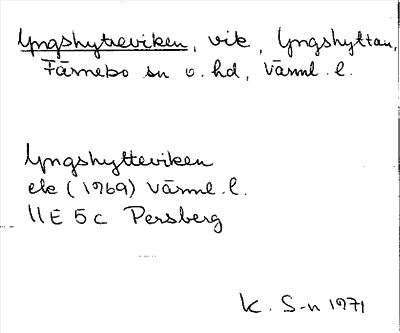 Yngshytteviken, vik, Yngshyttan,
Färnebo sn o. hd, Värml. l.
Yngshytteviken
ek (1969) Värml. l.
11E 5c Persberg
K. S-n 1971